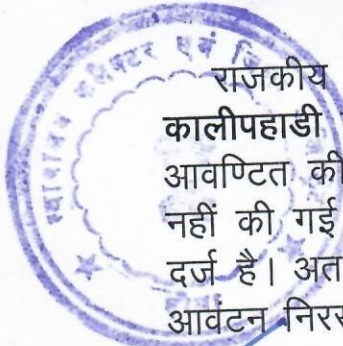 कलैक्टर एवं
राजकीय
कालीपहाडी
आवण्टित की
नहीं की गई
दर्ज है। अत
आवंटन निरस